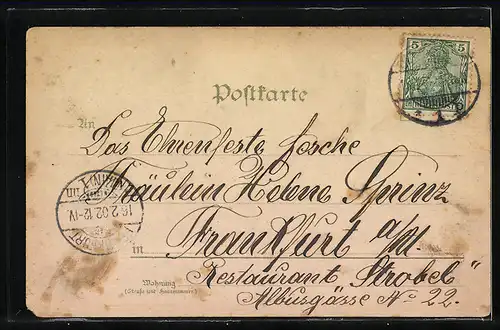 5 5
Postkarte
An
Das Ehrenfeste fesche
Fräulein Helene Sprinz
16.2.02.12-1V.
in Frankfurt a/M.
Restaurant Strobel"
Wohnung
(Straße und Hausnummer)
Albusgässe No 22.